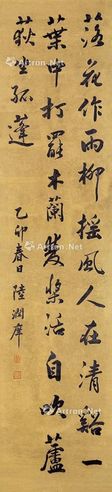 落花作雨柳搖風人在清谿一
葉中打罷木蘭雙槳活自吹蘆
荻坐孤蓬
乙卯春日陸潤庠